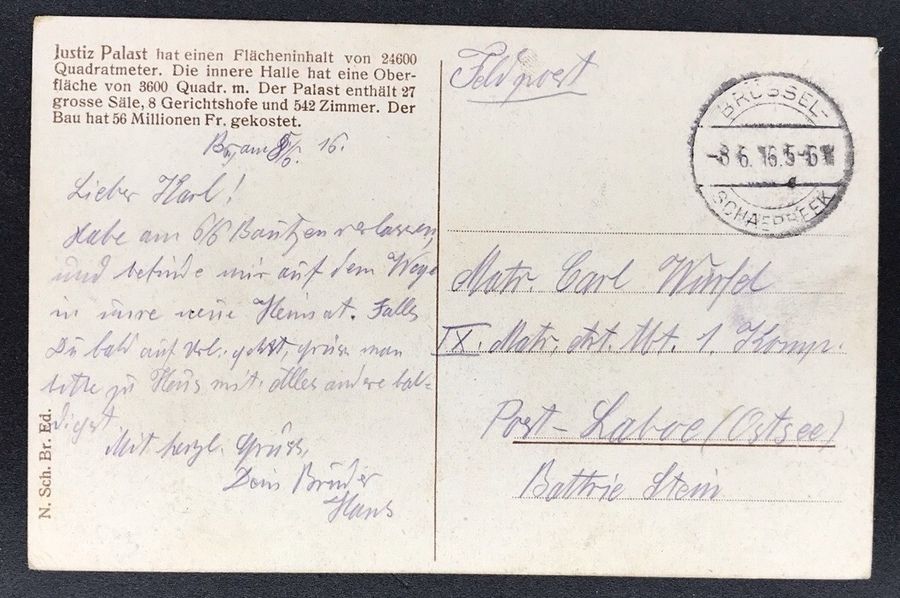 Justiz Palast hat einen Flächeninhalt von 24600
Quadratmeter. Die innere Halle hat eine Ober-
fläche von 3600 Quadr. m. Der Palast enthält 27
grosse Säle, 8 Gerichtshofe und 542 Zimmer. Der
Bau hat 56 Millionen Fr. gekostet.
am 8/6. 16.
Lieber Karl!
Habe am 6/6 Bautzen verlassen,
und befinde mir auf dem Wege
in unsre neue Heimat. Falls
Du bald auf Url. gehst, grüss man
bitte zu Haus mit. Alles andere bal-
digst
Mit herzl. Gruss,
Dein Bruder
Hans
N. Sch. Br. Ed.
Feldpost
BRÜSSEL-
-8 6. 16. 5-6
SCHAERBEEK
Matr. Carl Wurfel
IX. Matr. Art. Abt. 1. Komp.
Post- Laboe (Ostsee)
Battrie Stein